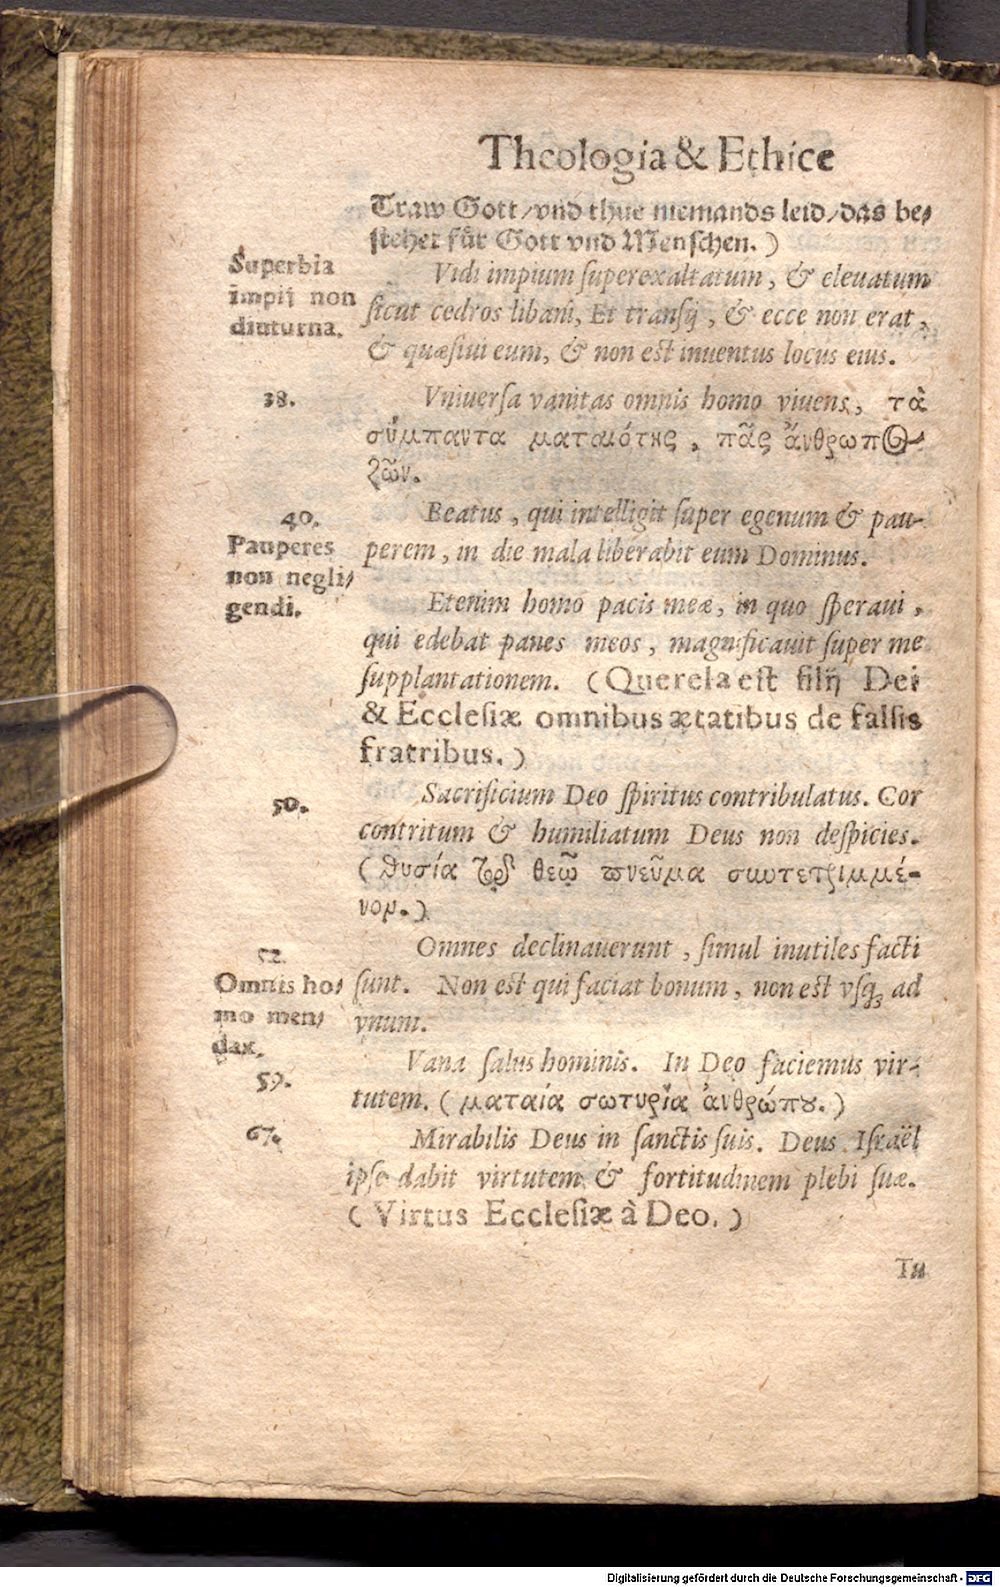 Theologia & Ethice
Traw Gott/vnd thue niemands leid/das be⸗
stehet für Gott vnd Menschen.)
Superbia
impij non
diuturna.
Vidi impium superexaltatum, & eleuatum
sicut cedros libani, Et transij, & ecce non erat,
& quæsiui eum, & non est inuentus locus eius.
38.
Vniuersa vanitas omnis homo viuens, τὰ
σύμπαντα ματαιότης, πᾶς ἄνθρωπος
ζῶν.
40.
Pauperes
non negli⸗
gendi.
Beatus, qui intelligit super egenum & pau-
perem, in die mala liberabit eum Dominus.
Etenim homo pacis meæ, in quo speraui,
qui edebat panes meos, magnificauit super me
supplantationem. (Querela est filij Dei
& Ecclesiæ omnibus ætatibus de falsis
fratribus.)
50.
Sacrificium Deo spiritus contribulatus. Cor
contritum & humiliatum Deus non despicies.
(θυσία τῷ θεῷ πνεῦμα συντετριμμέ-
νον.)
52.
Omnis ho⸗
mo men⸗
dax.
Omnes declinauerunt, simul inutiles facti
sunt. Non est qui faciat bonum, non est vsq; ad
vnum.
59.
Vana salus hominis. In Deo faciemus vir-
tutem. (ματαία σωτυρία ἀνθρώπου.)
67.
Mirabilis Deus in sanctis suis. Deus Israël
ipse dabit virtutem & fortitudinem plebi suæ.
(Virtus Ecclesiæ à Deo.)
Tu
Digitalisierung gefördert durch die Deutsche Forschungsgemeinschaft - DFG